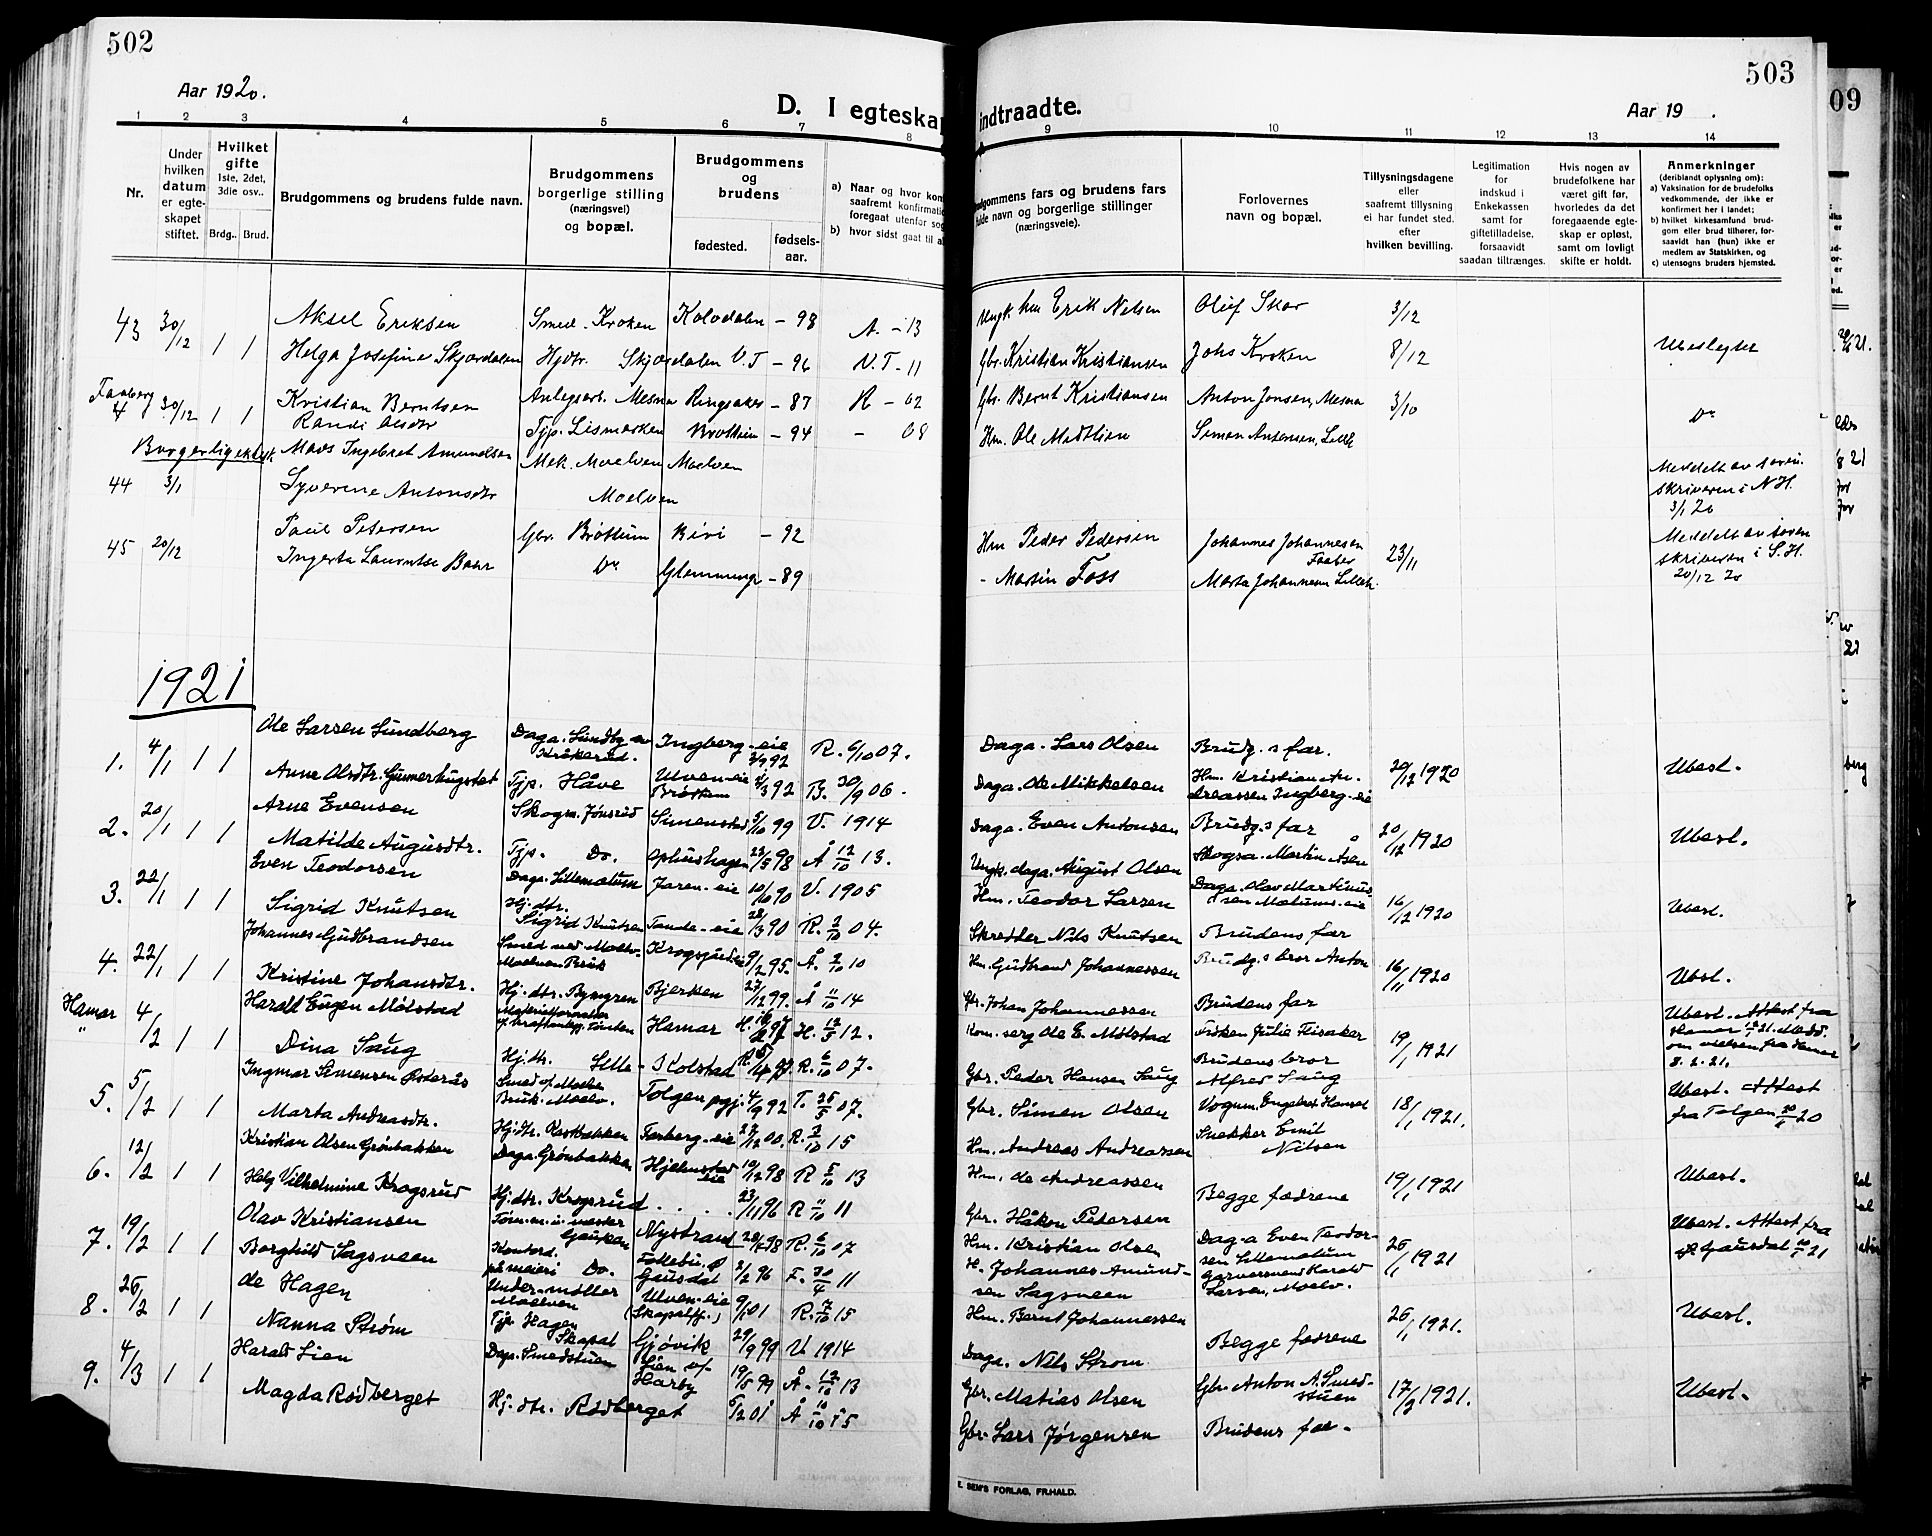 502
Aar 1920.
D. I egteskap
1 2 3 4 5 6 7 8
Nr.
Under hvilken datum er egteskapet stiftet.
Hvilket gifte 1ste, 2det, 3die osv..
Brdg.. Brud.
Brudgommens og brudens fulde navn.
Brudgommens borgerlige stilling (næringsvei) og bopæl.
Brudgommens og brudens
fødested. fødsels-aar.
a) Naar og hvor kon
saafremt konfirmatio
foregaat utenfor sog
b) hvor sidst gaat til al
43 30/12 1 1 Aksel Eriksen Smed. Kroken Kolodalen - 98 A. - 13
Helga Josefine Skjærdalen Hjdtr. Skjærdalen V.T - 96 V.T - 11
Faaberg 4 30/12 1 1 Kristian Berntsen Anlegsarb. Mesna Ringsaker - 87 R - 02
Randi Olsdtr Tjp. Lismarken Brøttum - 94 - 08
Borgerlig ektesk Mavs Ingebret Amundsen Mek. Moelven Moelven
44 3/1 Syverine Antonsdtr Moelven
Paul Petersen Gbr. Brøttum Biri - 92
45 20/12 Ingerta Lauentse Baar Do Glemminge - 89
1921
Ole Larsen Sundberg Daga. Sundby av Kråkerud. Ingberg-eie 2/9 92 R. 6/10 07.
1. 4/1 1 1 Anne Olsdtr. Gunnerhugstet Tjp. Håve Ulven-eie Brøttum 3/3 92 B. 30/9 06.
Arne Evensen Skogsa. Jønsrud Simenstad 5/10 99 V. 1914
2. 20/1 1 1 Matilde Augusdtr. Tjp. Do. Ophushagen 23/5 98 Å 12/10 13.
Even Teodorsen Daga. Sillemælum Jaren-eie 10/10 90 V. 1905
3. 22/1 1 1 Sigrid Knutsen Hj.dtr. Sigrid Knutsen Tande-eie 28/3 90 R. 2/10 04.
Johannes Gudbrandsen Smed ved Moelv- Moelven Bruk Krogsgårdeie 9/2 95. Å. 2/10 10
4. 22/1 1 1 Kristine Johansdtr. Hj.dtr. Byngren Bjerken 27/12 99. Å 11/10 14
Hamar " 4/2 1 1 Harald Eugen Mølstad Hamar H. 12/5 12.
Dina Saug Hj.dtr. Lille- Kolstad R. 6/10 07.
Ingmar Simensen Østerås Smed v/ Moelv Bruk. Moelv. Tolgen pgj. 4/9 92 T. 25/5 07.
5. 5/2 1 1 Marta Andreasdtr. Hj.dtr. Restbakken Farberg-eie 27/12 00. R. 3/10 15
Kristian Olsen Grønbakken Daga. Grønbakken Hjelmstad eie 10/12 98 R 5/10 13
6. 12/2 1 1 Helg Vilhelmine Krogsrud Hj.dtr. Krogsrud . . . . 23/11 96 R 11/10 11
Olav Kristiansen Tøm.m. u. mester Gausken Nystrand R. 6/10 07
7. 19/2 1 1 Borghild Sagsveen Kontord. på meieri Do. Follebu. Ø Gausdal 2/2 96 F. 30/4 11
Ole Hagen Under-møller Moelven Ulven-eie (Skapalfj.) 9/1 01 R. 7/10 15
8. 26/2 1 1 Nanna Strøm Tjp. Hagen Skapal Gjøvik 29/9 99 V 1914
Harald Lien Daga. Smedstuen Lien v/ Harby 19/5 99 Å. 12/10 13
9. 4/3 1 1 Magda Rødberget Hj.dtr. Rødberget 5/2 01 Å 10/10 15
503
indtraadte.
Aar 19 .
9 10 11 12 13 14
dgommens fars og brudens fars
fulde navn og borgerlige stillinger
(næringsveie).
Forlovernes navn og bopæl.
Tillysningsdagene eller saafremt tillysning ei har fundet sted. efter hvilken bevilling.
Legitimation for indskud i Enkekassen samt for giftetilladelse, forsaavidt saadan tiltrænges.
Hvis nogen av brudefolkene har været gift før, hvorledes da det foregaaende egteskap er opløst, samt om lovligt skifte er holdt.
Anmerkninger
(deriblandt oplysning om):
a) Vaksination for de brudefolks vedkommende, der ikke er konfirmert her i landet;
b) hvilket kirkesamfund brudgom eller brud tilhører, forsaavidt han (hun) ikke er medlem av Statskirken, og
c) utensogns bruders hjemsted.
Ungk. hm Erik Nilsen Oluf Skar 3/12
Gbr. Kristian Kristiansen Johs Kroken 8/12 Ubeslegtet
Gbr. Bernt Kristiansen Anton Jonsen, Mesna 3/10 Do
Hm. Ole Medtlien Simon Antonsen, Lilleh
Meddelt av soren-
skriveren i N.H.
3/1 20
Hm Peder Pedersen Johannes Johannesen Faaber 23/11 Meddelt av soren
skriveren i S.H.
20/12 20
- Martin Foss Marta Johannesen Lilleh.
Daga. Lars Olsen Brudg.s far. 20/12 1920 Ubesl.
Daga. Ole Mikkelsen Hm. Kristian An-
dreassen Ingberg-eie
Daga. Even Antonsen Brudg.s far 20/12 1920 Ubesl.
Ungk. daga. August Olsen Skogsa. Martin Åsen
Hm. Teodor Larsen Daga. Olav Martinus
sen Mælums-eie 16/12 1920 Ubesl.
Skredder Nils Knutsen Brudens far
Hm. Gudbrand Johannessen Brudg.s bror Anton 16/11 1920 Ubsl.
Gbr. Johan Johannessen Brudens far
Kom. serg Ole E. Mølstad Frøken Julia Feisaker 19/1 1921 Ubesl. Attest fra
Hamar
8.2.21.
Gbr. Peder Hansen Saug Brudens bror
Alfred Saug
Gbr. Simen Olsen Vognm. Engebret Hansen 18/1 1921. Ubesl. Attest
fra Tolgen 20/11 20
Hm. Andreas Andreassen Snekker Emil
Nilsen
Hm. Ole Andreassen Begge fædrene 19/1 1921 Ubesl.
Gbr. Håkon Pedersen
Hm. Kristian Olsen Dag-a Even Teodor-
sen Sillemælum 26/1 1921 Ubesl. Attest fra
Ø. Gausdal 21
H. Johannes Amund-
sen Sagsveen Garversvend Harald
Larsen, Moelv.
Hm. Bernt Johannessen Begge fædrene 26/1 1921. Ubesl.
Daga. Nils Strøm
Gbr. Matias Olsen Gbr. Anton A. Smed-
stuen 17/2 1921. Ubesl.
Gbr. Lars Jørgensen Brudens far.
E. SEM'S FORLAG, FR.HALD.
09